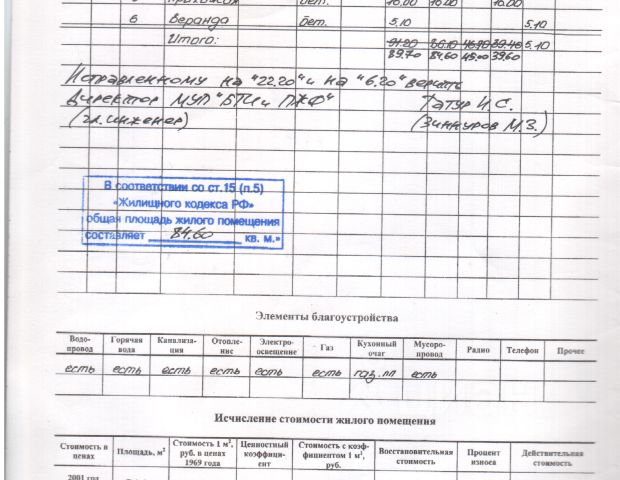 16.00 16.00 16.00
6 Веранда бет. 5,10 5,10
Итого: 91.20 86.10 39.40 5,10
89.70 84.60 45.00 39.60
Исправленному на "22.20" и на "6.20" верить
Директор МУП "БТИ и ПЖФ" Татур И.С.
(гл. инженер) (Зиннуров М.З.)
В соответствии со ст.15 (п.5)
«Жилищного кодекса РФ»
общая площадь жилого помещения
составляет 84.60 кв. м.»
Элементы благоустройства
Водо- Горячая Канализа- Отопле- Электро- Газ Кухонный Мусоро- Радио Телефон Прочее
провод вода ция ние освещение очаг провод
есть есть есть есть есть есть газ.пл есть
Исчисление стоимости жилого помещения
Стоимость в Площадь, м² Стоимость 1 м², Ценностный Стоимость с коэф- Восстановительная Процент Действительная
ценах руб. в ценах коэффици- фициентом 1 м², стоимость износа стоимость
1969 года ент руб.
2001 год